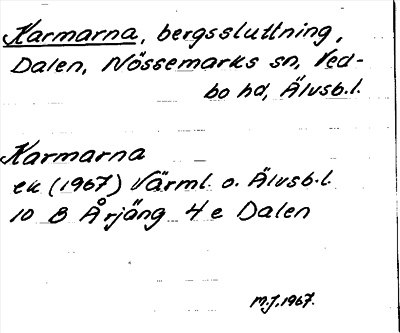 Karmarna, bergssluttning,
Dalen, Nössemarks sn, Ved-
bo hd, Älvsb.l.
Karmarna
ek (1967) Värml. o. Älvsb.l.
10 B Årjäng 4 e Dalen
M.J. 1967.